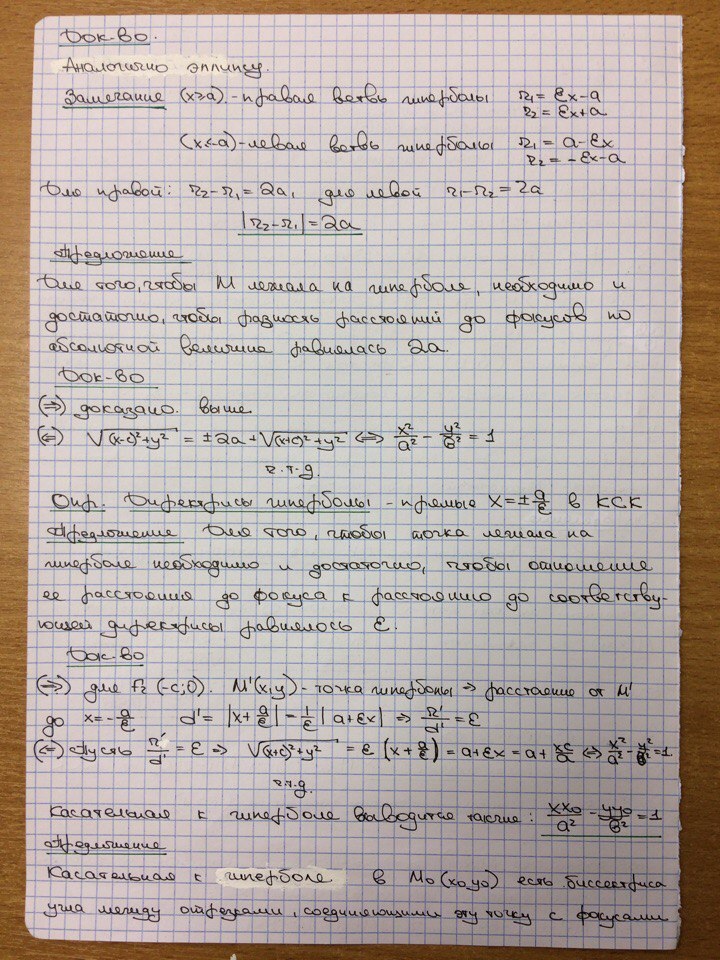 Док-во.
Аналогично эллипсу.
Замечание (x≥a) - правая ветвь гиперболы r₁ = εx-a
r₂ = εx+a
(x≤-a) - левая ветвь гиперболы r₁ = a-εx
r₂ = -εx-a
Для правой: r₂-r₁=2a, для левой r₁-r₂=2a
|r₂-r₁|=2a
Предложение
Для того, чтобы M лежала на гиперболе, необходимо и
достаточно, чтобы разность расстояний до фокусов по
абсолютной величине равнялась 2a.
Док-во
(⇒) доказано выше
(⇐) √((x-c)²+y²) = ±2a + √((x+c)²+y²) ⇔ x²/a² - y²/b² = 1
ч.т.д.
Опр. Директрисы гиперболы - прямые x=±a/ε в КСК
Предложение Для того, чтобы точка лежала на
гиперболе необходимо и достаточно, чтобы отношение
ее расстояния до фокуса к расстоянию до соответству-
ющей директрисы равнялось ε.
Док-во
(⇒) для F₂ (-c;0). M'(x,y) - точка гиперболы ⇒ расстояние от M'
до x=-a/ε d'=|x+a/ε|=1/ε|a+εx| ⇒ r'/d'=ε
(⇐) Пусть r'/d'=ε ⇒ √((x+c)²+y²) = ε(x+a/ε)=a+εx=a+xc/a ⇔ x²/a²-y²/b²=1.
ч.т.д.
Касательная к гиперболе выводится также: xx₀/a² - yy₀/b² = 1
Предложение
Касательная к гиперболе в M₀(x₀,y₀) есть биссектриса
угла между отрезками, соединяющими эту точку с фокусами